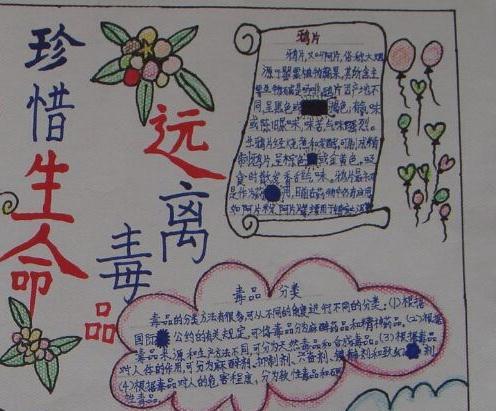 珍惜生命
远离毒品
鸦片
鸦片,又叫阿片,俗称大烟
源于罂粟植物蒴果,其所含主
要生物碱是吗啡。鸦片因产地不
同,呈黑色或褐色,有氨味
或陈旧尿味,味苦,气味强烈。
生鸦片经烧煮和发酵,可制成精
制鸦片,呈棕色或金黄色。吸
食时散发香甜气味。
毒品 分类
毒品的分类方法有很多,可从不同的角度进行不同的分类:(1)根据
国际公约的有关规定,可将毒品分为麻醉药品和精神药品。(2)根据
毒品来源和生产方法不同,可分为天然毒品和合成毒品。(3)根据毒品
对人体的作用,可分为麻醉剂、抑制剂、兴奋剂、镇静剂和致幻剂
(4)根据毒品对人的危害程度,分为软性毒品和硬
性毒品